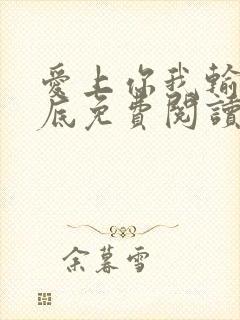 愛上你我輸
底免費閱讀
余暮雪